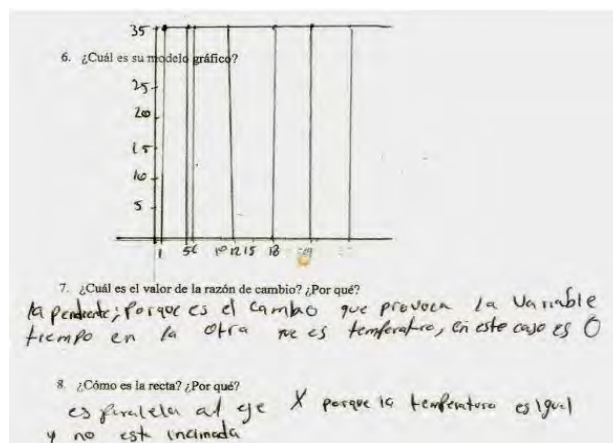 35
6. ¿Cuál es su modelo gráfico?
25
20
15
10
5
1 56 10 12 15 18
7. ¿Cuál es el valor de la razón de cambio? ¿Por qué?
la pendiente; Porque es el cambio que provoca la variable
tiempo en la otra es temperatura, en este caso es 0
8. ¿Cómo es la recta? ¿Por qué?
es paralela al eje X porque la temperatura es igual
y no esta inclinada